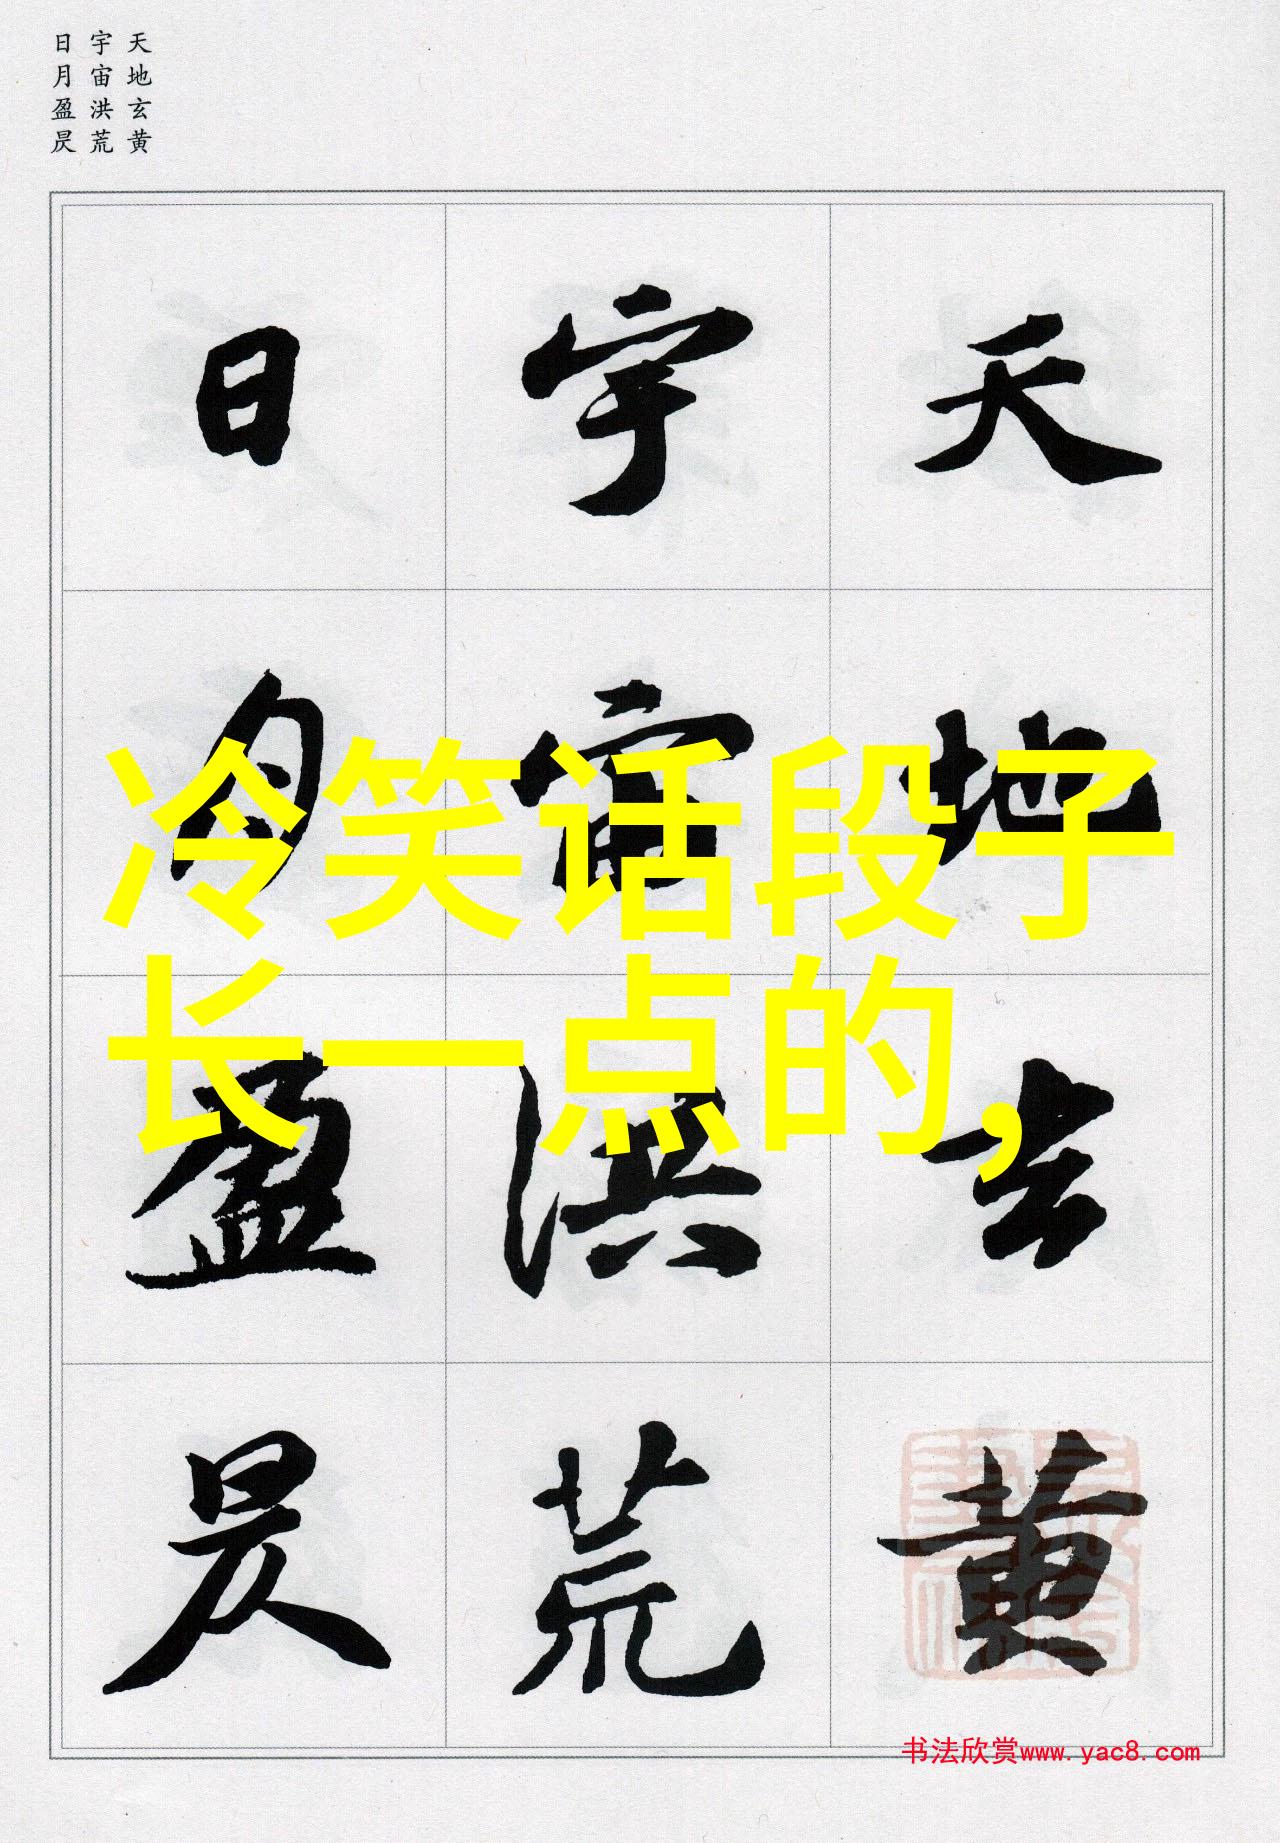 天地玄黄
宇宙洪荒
日月盈昃
天地玄黄
宇宙洪荒
日月盈昃
冷笑话段子
长一点的,
书法欣赏www.yac8.com